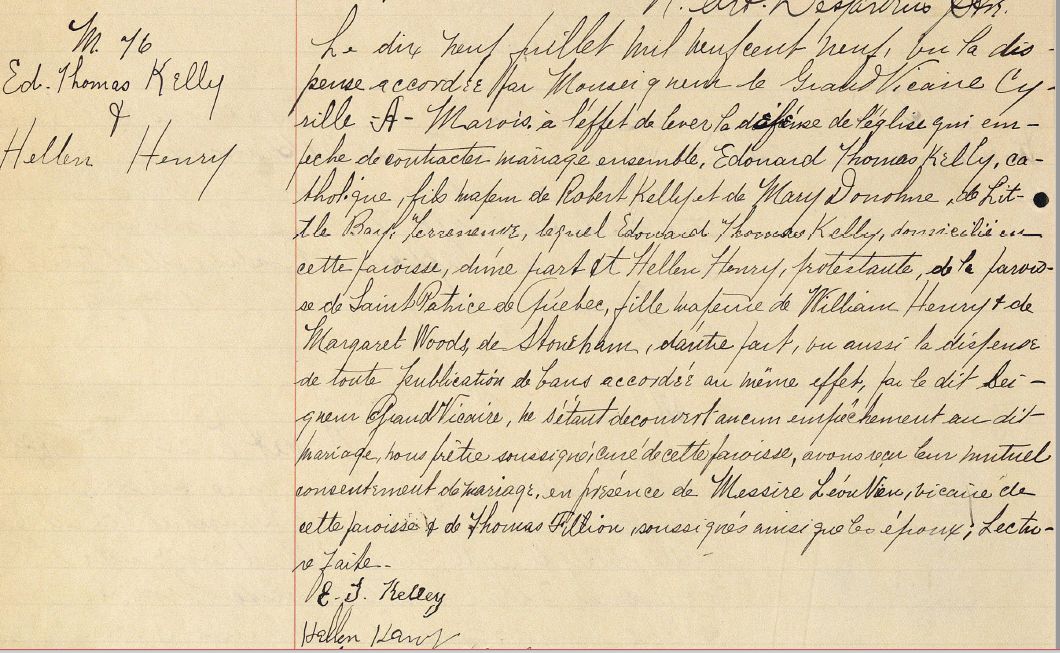 N. Art. Desjardins Ptre.
M. 76
Ed. Thomas Kelly
&
Hellen Henry
Le dix neuf juillet mil neuf cent neuf, vu la dis-
pense accordée par Monseigneur le Grand Vicaire Cy-
rille -A- Marois, à l'éffet de lever la défense de l'église qui em-
pêche de contracter mariage ensemble, Edouard Thomas Kelly, ca-
tholique, fils majeur de Robert Kelly et de Mary Donohue, de Lit-
tle Bay, Terreneuve, lequel Edouard Thomas Kelly, domicilié en
cette paroisse, d'une part et Hellen Henry, protestante, de la parois-
se de Saint Patrice de Québec, fille majeure de William Henry & de
Margaret Woods, de Stoneham, d'autre part, vu aussi la dispense
de toute publication de bans accordée au même effet, par le dit Sei-
gneur Grand Vicaire, ne s'étant decouvert aucun empêchement au dit
mariage, nous prêtre soussigné, curé de cette paroisse, avons reçu leur mutuel
consentement de mariage, en présence de Messire Léon Vien, vicaire de
cette paroisse & de Thomas Fillion, soussignés ainsi que les époux; Lectu-
re faite.-
E. T. Kelley
Hellen Henry